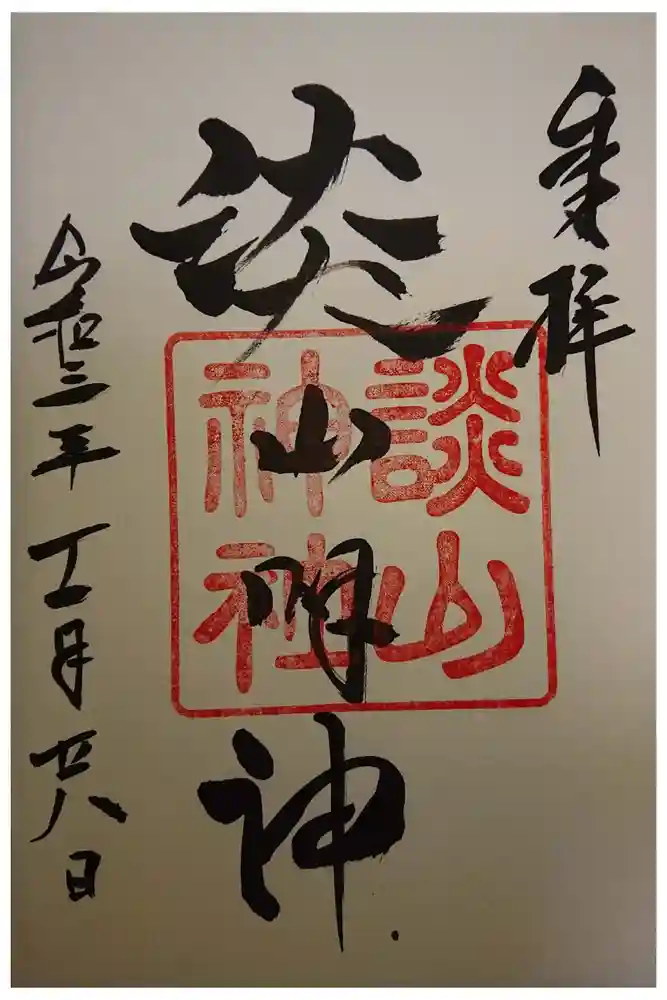 奉拝
談山明神
談山
神社
令和三年十一月廿八日